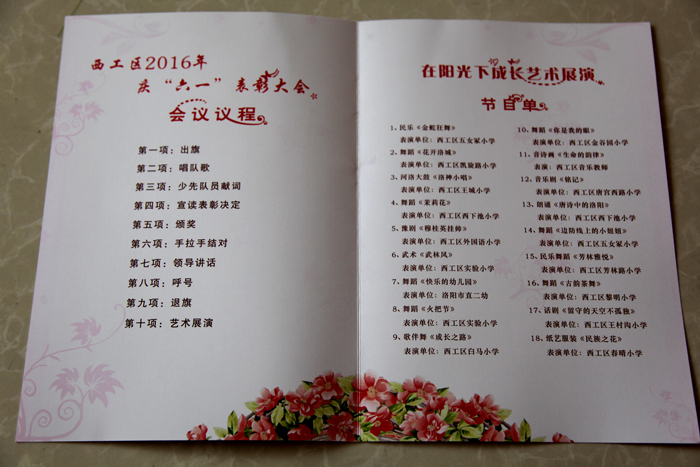 西工区2016年
庆“六一”表彰大会
会议议程
第一项：出旗
第二项：唱队歌
第三项：少先队员献词
第四项：宣读表彰决定
第五项：颁奖
第六项：手拉手结对
第七项：领导讲话
第八项：呼号
第九项：退旗
第十项：艺术展演
在阳光下成长艺术展演
节目单
1、民乐《金蛇狂舞》
表演单位：西工区五女冢小学
2、舞蹈《花开洛城》
表演单位：西工区凯旋路小学
3、河洛大鼓《洛神小唱》
表演单位：西工区王城小学
4、舞蹈《茉莉花》
表演单位：西工区西下池小学
5、豫剧《穆桂英挂帅》
表演单位：西工区外国语小学
6、武术《武林风》
表演单位：西工区实验小学
7、舞蹈《快乐的幼儿园》
表演单位：洛阳市直二幼
8、舞蹈《火把节》
表演单位：西工区实验小学
9、歌伴舞《成长之路》
表演单位：西工区白马小学
10、舞蹈《你是我的眼》
表演单位：西工区金谷园小学
11、音诗画《生命的韵律》
表演：西工区音乐教师
12、音乐剧《铭记》
表演单位：西工区唐宫西路小学
13、朗诵《唐诗中的洛阳》
表演单位：西工区西下池小学
14、舞蹈《边防线上的小妞妞》
表演单位：西工区五女冢小学
15、民乐舞蹈《芳林雅悦》
表演单位：西工区芳林路小学
16、舞蹈《古韵茶舞》
表演单位：西工区黎明小学
17、话剧《留守的天空不孤独》
表演单位：西工区王村沟小学
18、纸艺服装《民族之花》
表演单位：西工区春晴小学